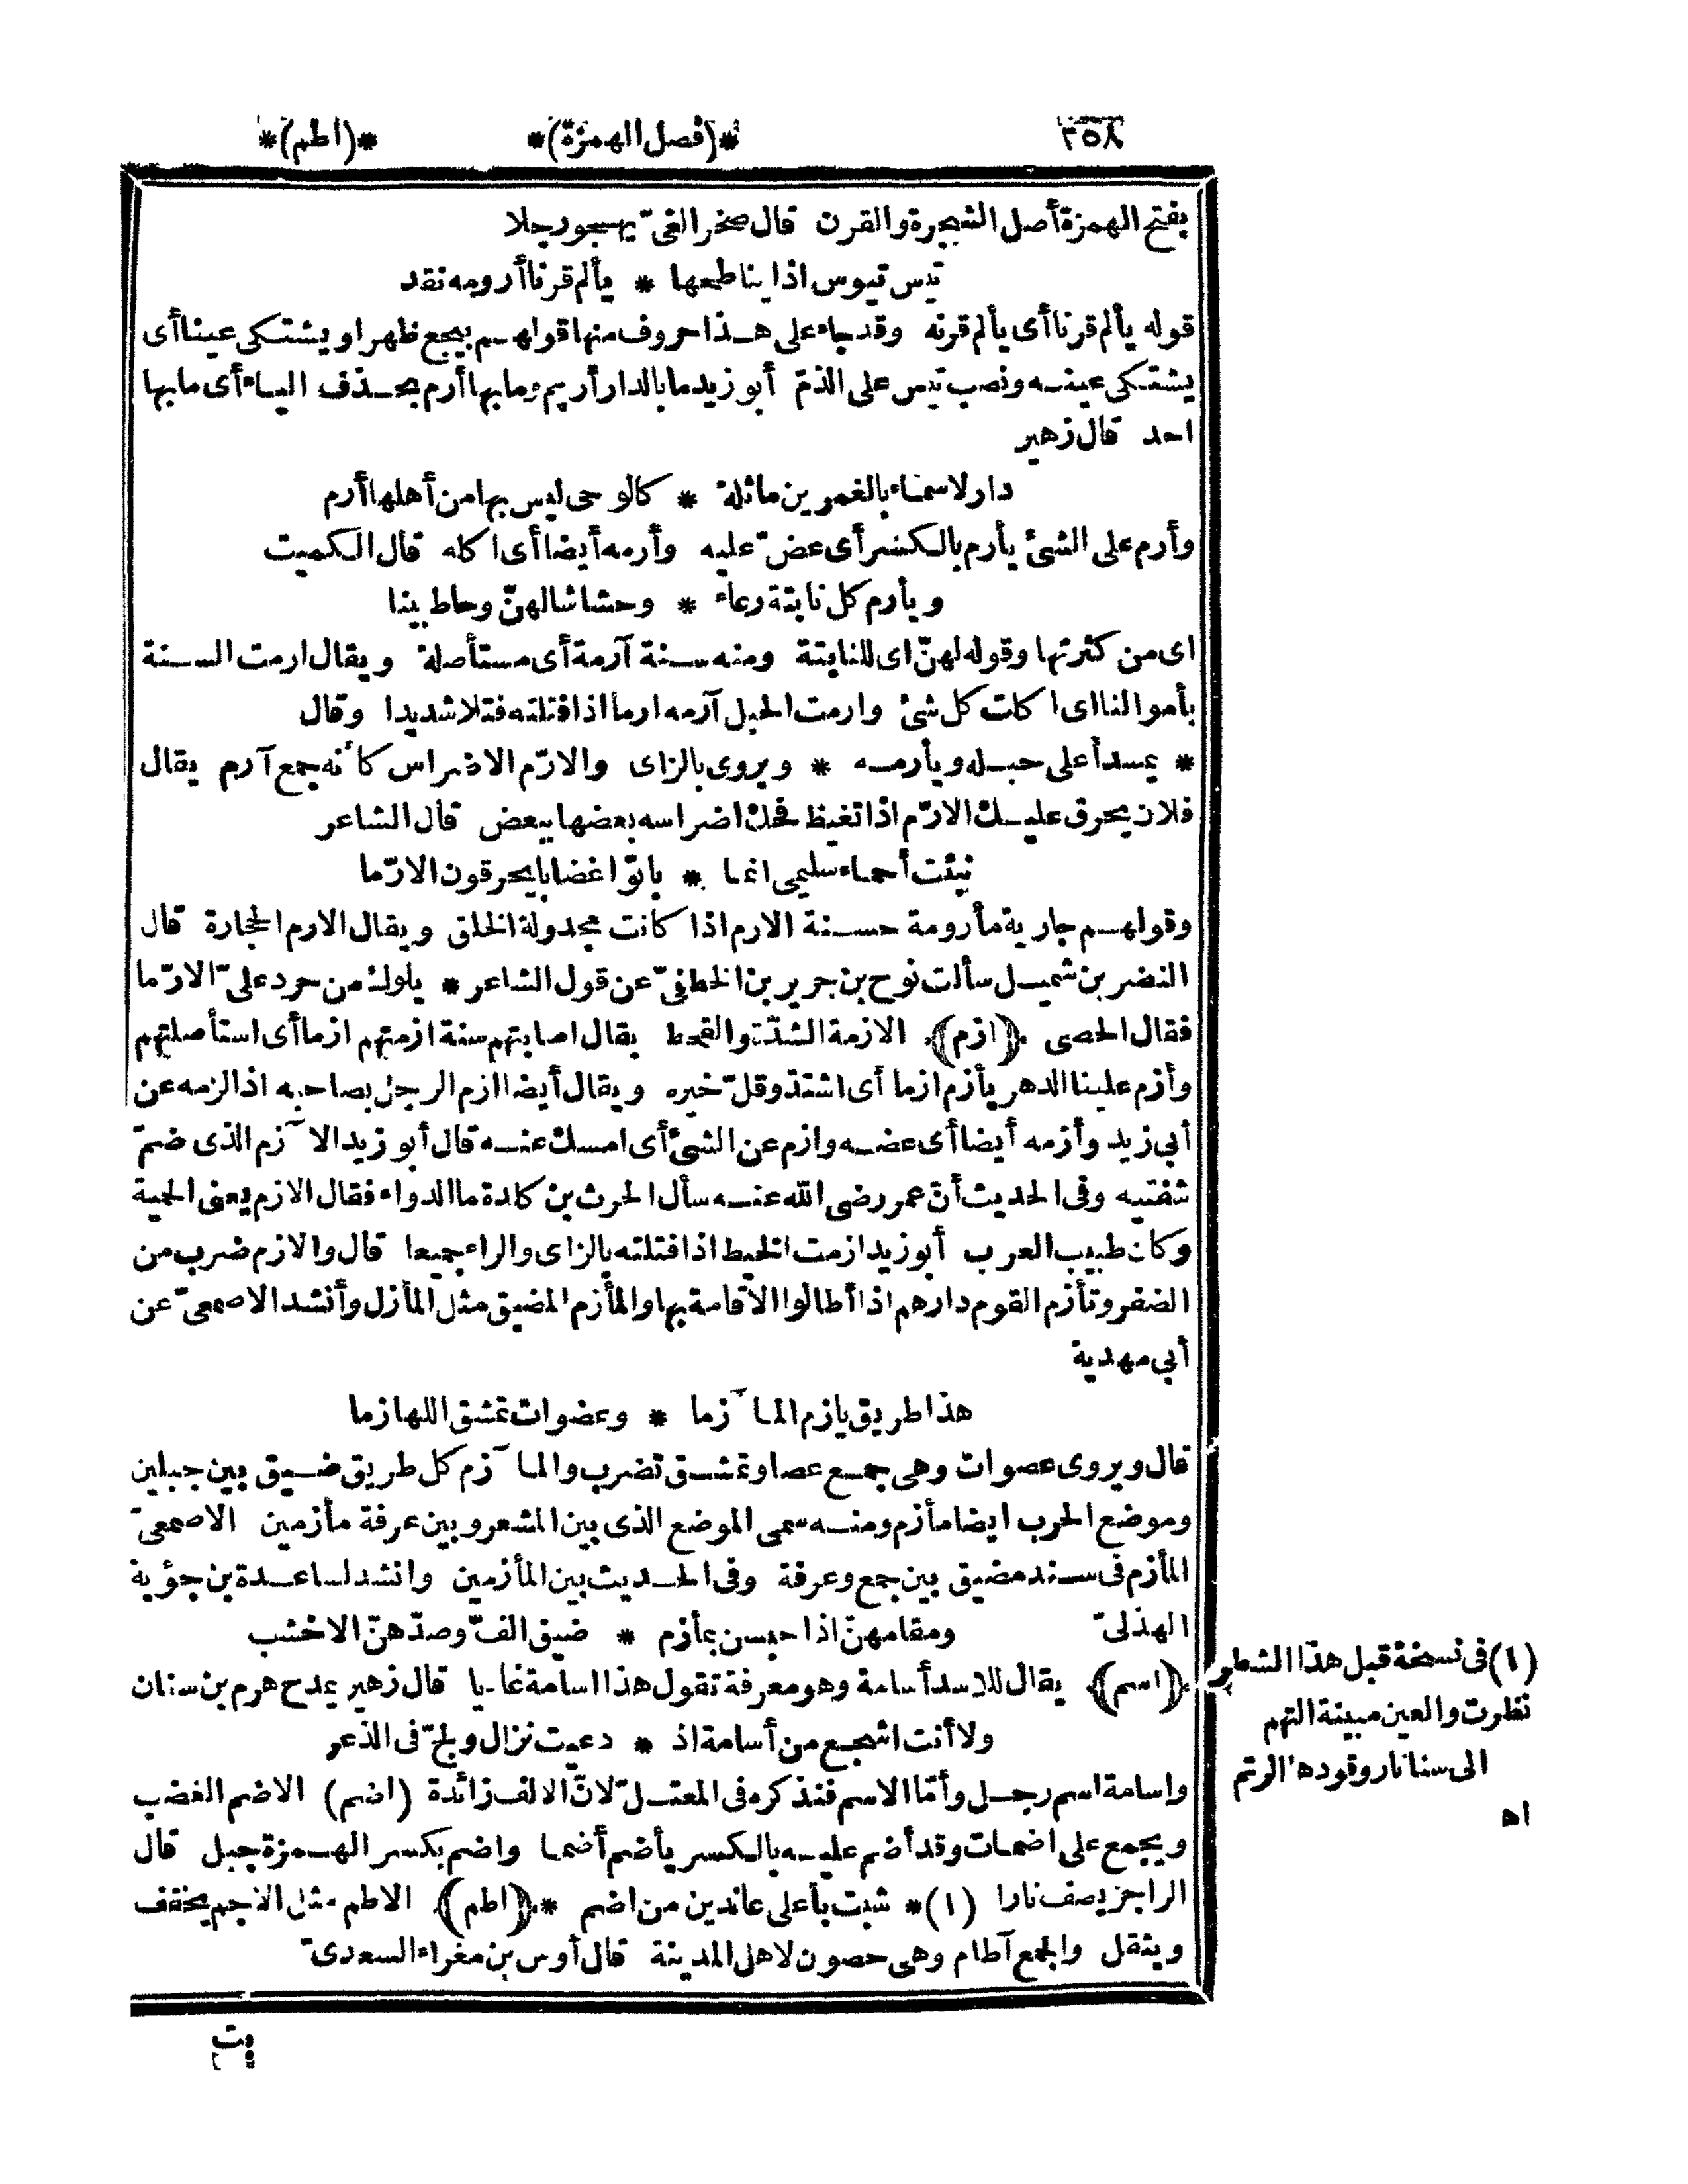 ٣٥٨ *(فصل الهمزة)* *(اطم)*
بفتح الهمزة أصل الشجرة والقرن قال صخر الغىّ يهجو رجلا
تيس تيوس اذا يناطحها * يألم قرنا أرومه نقد
قوله يألم قرنا أى يألم قرنه وقد جاء على هذا حروف منها قولهم ييجع ظهرا ويشتكى عينا أى
يشتكى عينه ونصب تيس على الذمّ أبو زيد ما بالدار أريم وما بها أرم بحذف الياء أى ما بها
احد قال زهير
دار لاسماء بالغمرين ماثلة * كالوحى ليس بها من أهلها أرم
وأرم على الشئ يأرم بالكسر أى عضّ عليه وأرمه أيضا أى اكله قال الكميت
ويأرم كل نابتة رعاء * وحشاشا لهنّ وحاطبينا
اى من كثرتها وقوله لهنّ اى للنابتة ومنه سنة آرمة أى مستأصلة ويقال ارمت السنة
بأموالنا اى اكلت كل شئ وارمت الحبل آرمه ارما اذا فتلته فتلا شديدا وقال
* يمسد أعلى حبله ويأرمه * ويروى بالزاى والارّم الاضراس كأنه جمع آرم يقال
فلان يحرق عليك الارّم اذا تغيظ فحك اضراسه بعضها ببعض قال الشاعر
نبئت أحماء سليمى انما * باتوا غضابا يحرقون الارّما
وقولهم جارية مأرومة حسنة الارم اذا كانت مجدولة الخلق ويقال الارم الحجارة قال
النضر بن شميل سألت نوح بن جرير بن الخطفىّ عن قول الشاعر * يلوك من حرد علىّ الارّما
فقال الحصى (ازم) الازمة الشدّة والقحط يقال اصابتهم سنة ازمتهم ازما أى استأصلتهم
وأزم علينا الدهر يأزم ازما أى اشتدّ وقلّ خيره ويقال أيضا ازم الرجل بصاحبه اذا لزمه عن
أبى زيد وأزمه أيضا أى عضه وازم عن الشئ أى امسك عنه قال أبو زيد الآزم الذى ضمّ
شفتيه وفى الحديث أنّ عمر رضى الله عنه سأل الحرث بن كلدة ما الدواء فقال الازم يعنى الحمية
وكان طبيب العرب أبو زيد ازمت الخيط اذا فتلته بالزاى والراء جميعا قال والازم ضرب من
الضفر وتأزم القوم دارهم اذا أطالوا الاقامة بها والمأزم المضيق مثل المأزل وأنشد الاصمعىّ عن
أبى مهدية
هذا طريق يازم المآزما * وعضوات تمشق اللهازما
قال ويروى عصوات وهى جمع عصا وتمشق تضرب والمآزم كل طريق ضيق بين جبلين
وموضع الحرب ايضا مأزم ومنه سمى الموضع الذى بين المشعر وبين عرفة مأزمين الاصمعىّ
المأزم فى سند مضيق بين جمع وعرفة وفى الحديث بين المأزمين وانشد لساعدة بن جؤية
الهذلىّ ومقامهنّ اذا حبسن بمأزم * ضيق الفّ وصدّهنّ الاخشب
(اسم) يقال للاسد أسامة وهو معرفة تقول هذا اسامة غاديا قال زهير يمدح هرم بن سنان
ولا أنت اشجع من أسامة اذ * دعيت نزال ولجّ فى الذعر
واسامة اسم رجل وأمّا الاسم فنذكره فى المعتلّ لانّ الالف زائدة (اضم) الاضم الغضب
ويجمع على اضمات وقد أضم عليه بالكسر يأضم أضما واضم بكسر الهمزة جبل قال
الراجز يصف نارا (١)* شبت بأعلى عاندين من اضم * (اطم) الاطم مثل الاجم يخفف
ويثقل والجمع آطام وهى حصون لاهل المدينة قال أوس بن مغراء السعدىّ
(١) فى نسخة قبل هذا الشطر
نظرت والعين مبينة التهم
الى سنا نار وقودها الرتم
اه